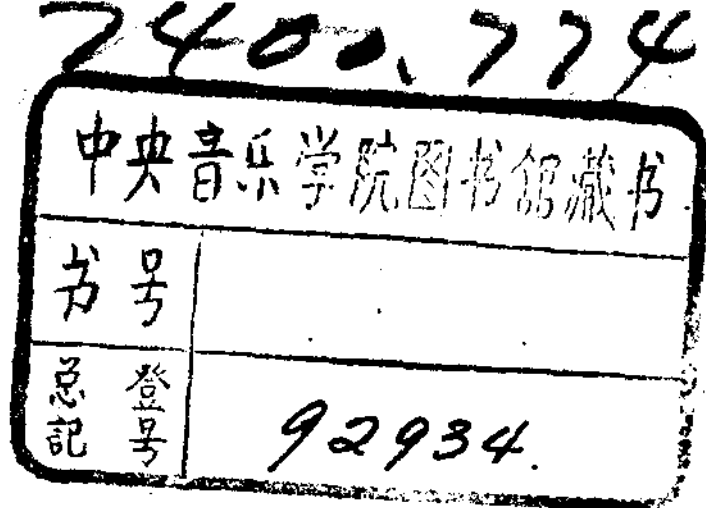 7400.774
中央音乐学院图书馆藏书
书号
总登
記号
92934.